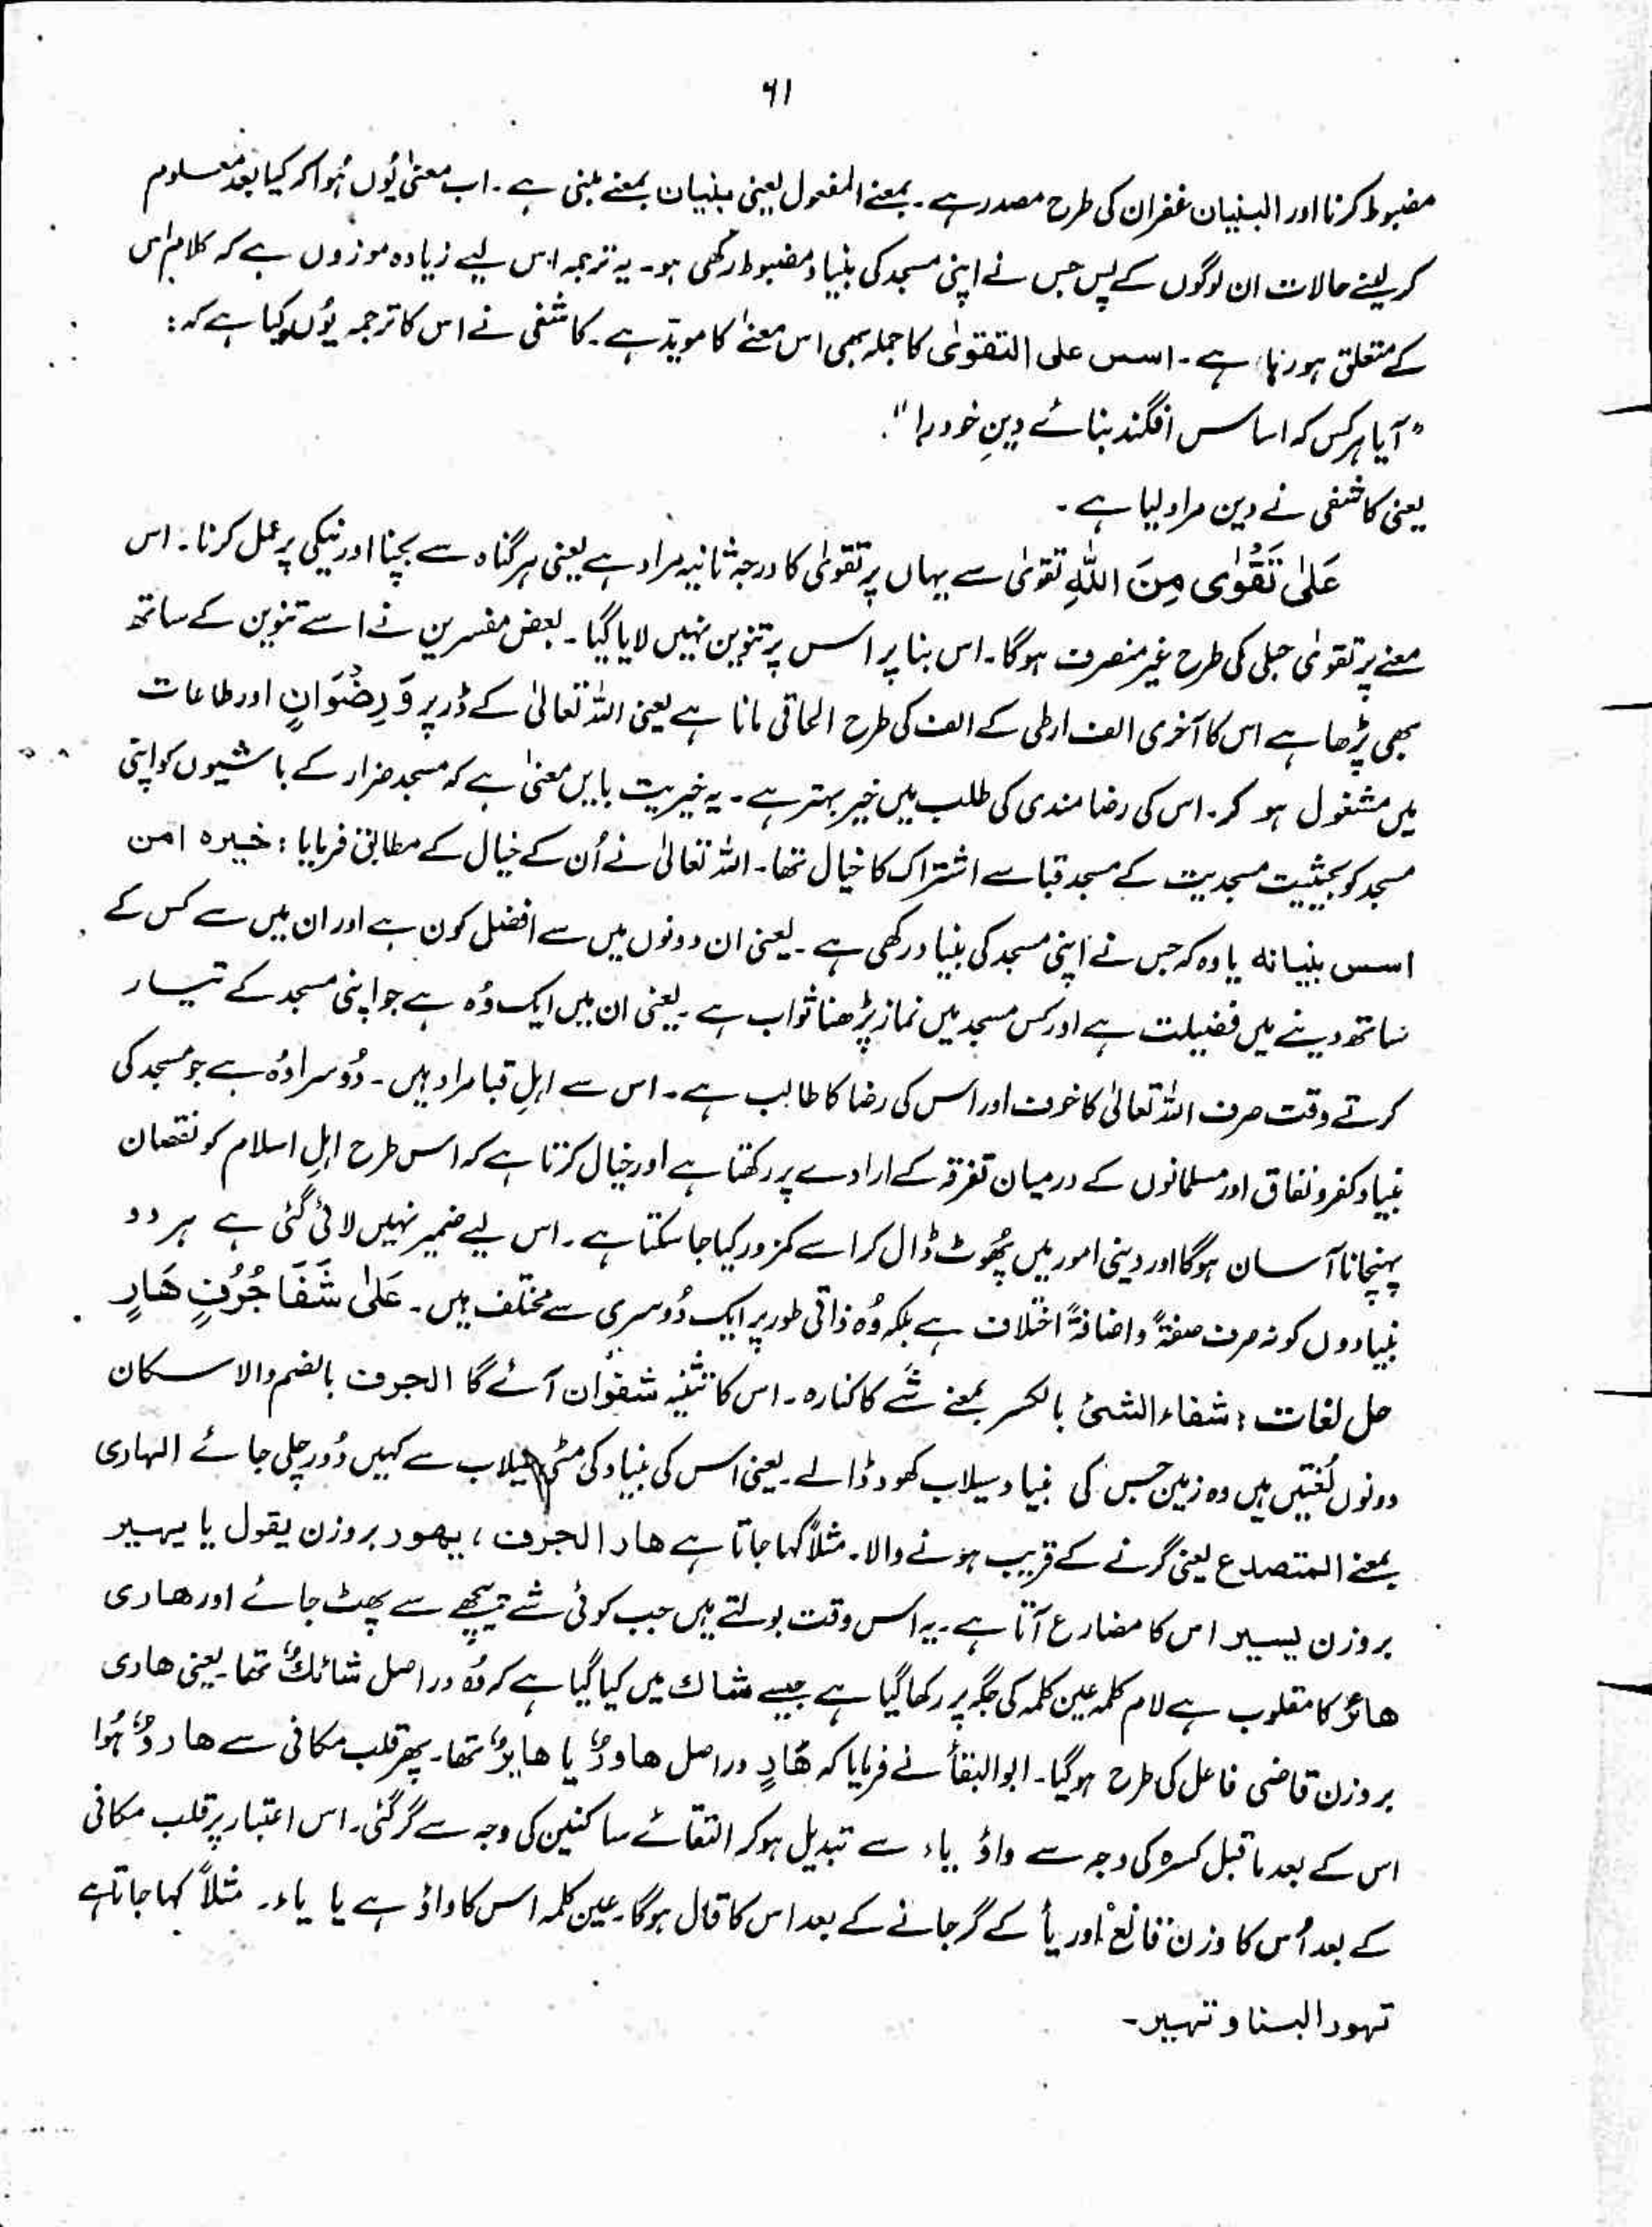 ۶۱
مضبوط کرنا اور البنیان غفران کی طرح مصدر ہے ۔ بمعنے المفعول یعنی بنیان بمعنے مبنی ہے ۔ اب معنیٰ یُوں ہُوا کہ کیا بعد معلوم
کر لینے حالات ان لوگوں کے پس جس نے اپنی مسجد کی بنیاد مضبوط رکھی ہو ۔ یہ ترجمہ اس لیے زیادہ موزوں ہے کہ کلام اس
کے متعلق ہو رہا ہے ۔ اسس علی التقوٰی کا جملہ بھی اس معنےٰ کا مویّد ہے ۔ کاشفی نے اس کا ترجمہ یُوں کیا ہے کہ :
" آیا ہر کس کہ اساس افگند بنائے دینِ خود را " ۔
یعنی کاشفی نے دین مراد لیا ہے ۔
عَلیٰ تَقْوٰی مِنَ اللّٰہِ تقویٰ سے یہاں پر تقویٰ کا درجہ ثانیہ مراد ہے یعنی ہر گناہ سے بچنا اور نیکی پر عمل کرنا ۔ اس
معنے پر تقویٰ حبلی کی طرح غیر منصرف ہوگا ۔ اس بنا پر اس پر تنوین نہیں لایا گیا ۔ بعض مفسرین نے اسے تنوین کے ساتھ
بھی پڑھا ہے اس کا آخری الف ارطی کے الف کی طرح الحاقی مانا ہے یعنی اللہ تعالیٰ کے ڈر پر وَ رِضْوَانٍ اور طاعات
میں مشغول ہو کر ۔ اس کی رضا مندی کی طلب میں خیر بہتر ہے ۔ یہ خیریت بایں معنیٰ ہے کہ مسجد ضرار کے باشیوں کو اپنی
مسجد کو بحیثیت مسجدیت کے مسجد قبا سے اشتراک کا خیال تھا ۔ اللہ تعالیٰ نے اُن کے خیال کے مطابق فرمایا : خیرہ امن
اسس بنیانہ یا وہ کہ جس نے اپنی مسجد کی بنیاد رکھی ہے ۔ یعنی ان دونوں میں سے افضل کون ہے اور ان میں سے کس کے
ساتھ دینے میں فضیلت ہے اور کس مسجد میں نماز پڑھنا ثواب ہے ۔ یعنی ان میں ایک وُہ ہے جو اپنی مسجد کے تیار
کرتے وقت صرف اللہ تعالیٰ کا خوف اور اس کی رضا کا طالب ہے ۔ اس سے اہلِ قبا مراد ہیں ۔ دُوسرا وُہ ہے جو مسجد کی
بنیاد کفر و نفاق اور مسلمانوں کے درمیان تفرقہ کے ارادے پر رکھتا ہے اور خیال کرتا ہے کہ اس طرح اہلِ اسلام کو نقصان
پہنچانا آسان ہوگا اور دینی امور میں پُھوٹ ڈال کر اسے کمزور کیا جا سکتا ہے ۔ اس لیے ضمیر نہیں لائی گئی ہے ہر دو
بنیادوں کو نہ صرف صفۃً و اضافۃً اختلاف ہے بلکہ وُہ ذاتی طور پر ایک دُوسری سے مختلف ہیں ۔ عَلیٰ شَفَا جُرُفٍ ھَارٍ
حل لغات : شفاء الشئ بالکسر بمعنے شے کا کنارہ ۔ اس کا تثنیہ شفوان آئے گا الجرف بالضم والاسکان
دونوں لُغتیں ہیں وہ زمین جس کی بنیاد سیلاب کھود ڈالے ۔ یعنی اس کی بنیاد کی مٹی سیلاب سے کہیں دُور چلی جائے الہاری
بمعنے المتصدع یعنی گرنے کے قریب ہونے والا ۔ مثلاً کہا جاتا ہے ھار الجرف ، یھور بروزن یقول یا یہیر
بروزن یسیر اس کا مضارع آتا ہے ۔ یہ اس وقت بولتے ہیں جب کوئی شے پیچھے سے پھٹ جائے اور ھاری
ھائر کا مقلوب ہے لام کلمہ عین کلمہ کی جگہ پر رکھا گیا ہے جیسے شاک میں کیا گیا ہے کہ وُہ دراصل شائکٌ تھا ۔ یعنی ھاری
بروزن قاضی فاعل کی طرح ہو گیا ۔ ابو البقأ نے فرمایا کہ ھَارٍ دراصل ھاورٌ یا ھایرٌ تھا ۔ پھر قلب مکانی سے ھاروٌ ہُوا
اس کے بعد ماقبل کسرہ کی وجہ سے واؤ یاء سے تبدیل ہو کر التقائے ساکنین کی وجہ سے گر گئی ۔ اس اعتبار پر قلب مکانی
کے بعد اُس کا وزن فالع اور یأ کے گر جانے کے بعد اس کا فال ہوگا ۔ عین کلمہ اس کا واؤ ہے یا یاء ۔ مثلاً کہا جاتا ہے
تہور البنا و تہیر ۔